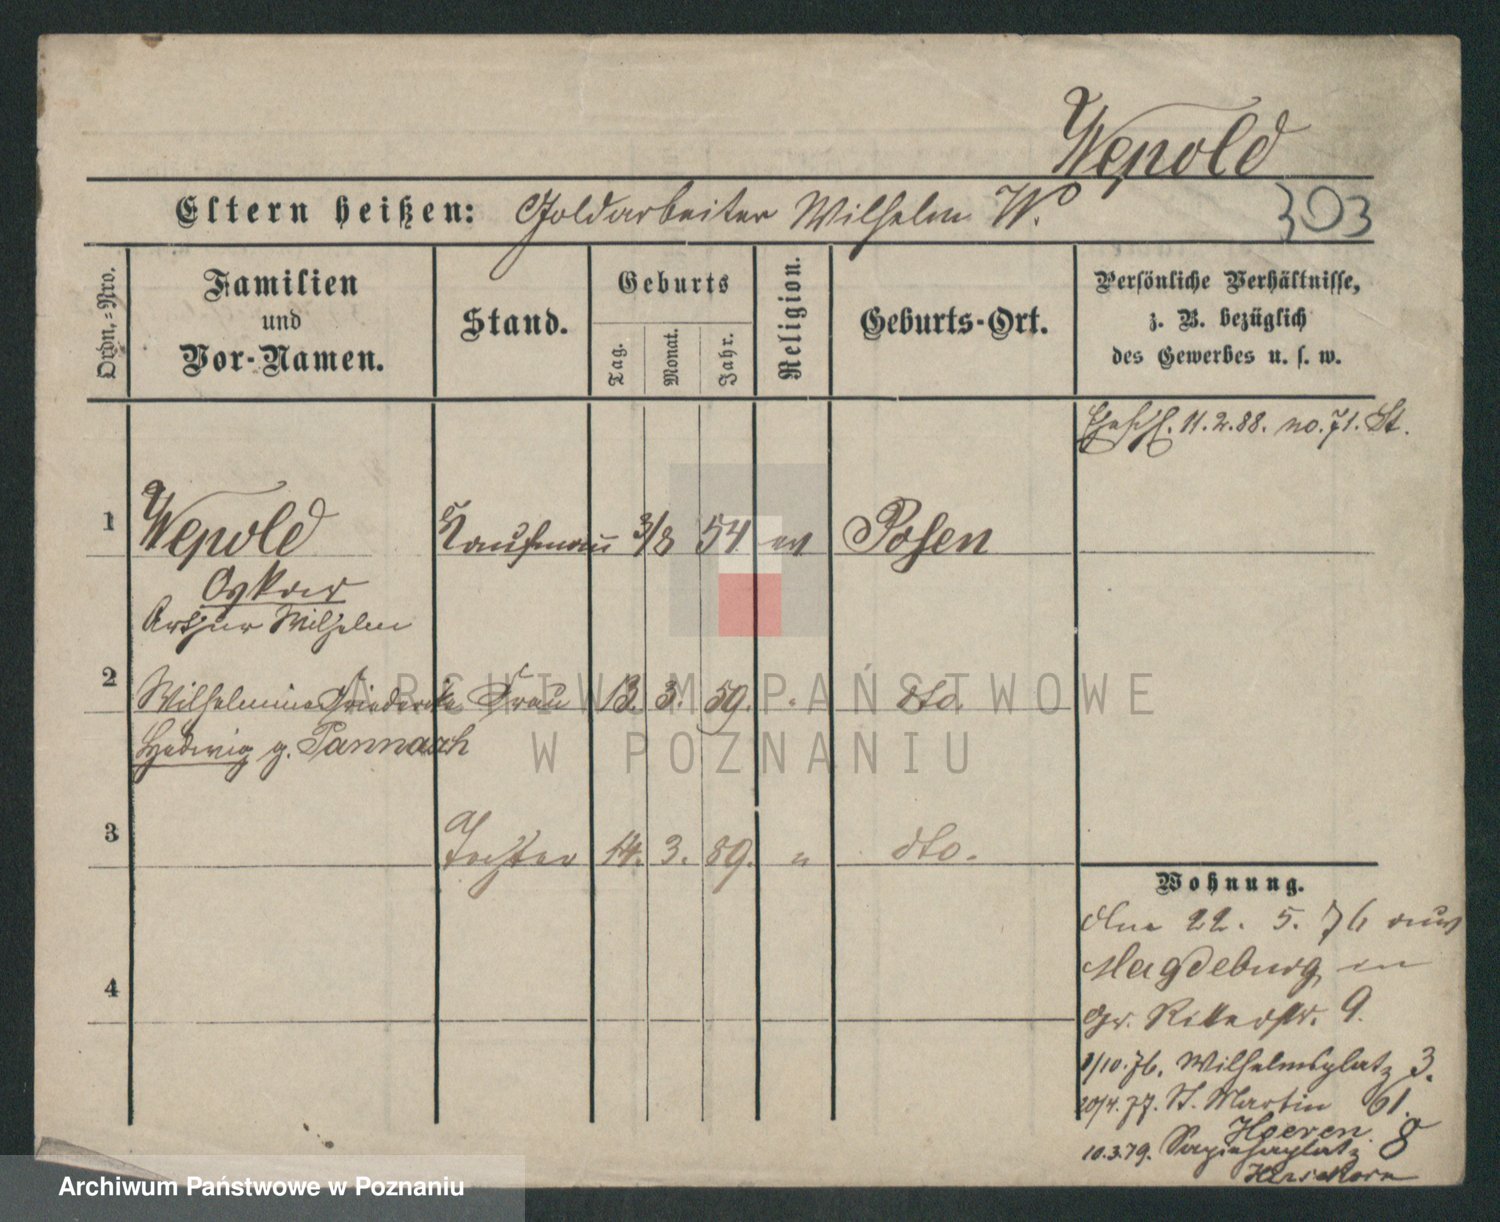 Wepold
Eltern heißen: Goldarbeiter Wilhelm W.
303
Ordn.-Nro.
Familien
und
Vor-Namen.
Stand.
Geburts
Tag.
Monat.
Jahr.
Religion.
Geburts-Ort.
Persönliche Verhältnisse,
z. B. bezüglich
des Gewerbes u. s. w.
11.2.88. no. 71. St.
1 Wepold Kaufmann 3/8 54 ev Posen
Oskar
Arthur Wilhelm
2 Wilhelmine Friederike Frau 13. 3. 59. " dto.
Hedwig g. Pannasch
3 Tochter 14. 3. 89. " dto.
4
Wohnung.
den 22. 5. 76 aus
Magdeburg in
Gr. Ritterstr. 9.
1/10.76. Wilhelmsplatz 3.
20/4.77. St. Martin 61.
Hoeven.
10.3.79. Sapiehaplatz 8
Hirsekorn
ARCHIWUM PAŃSTWOWE
W POZNANIU
Archiwum Państwowe w Poznaniu